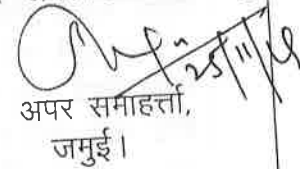 25/11/
अपर समाहर्त्ता,
जमुई।